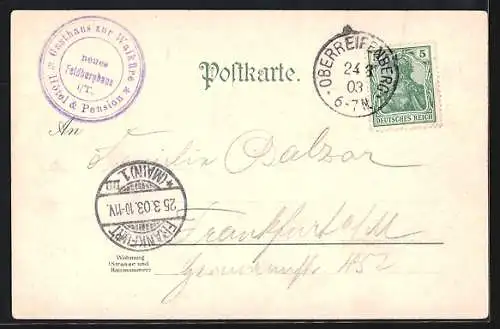 Gasthaus zur Walküre
neues
Feldberghaus
i/T.
Hôtel & Pension
Postkarte.
OBERREIFENBERG
24 3
03
6-7 N.
5
DEUTSCHES REICH
An
Familie Balzar
FRANKFURT
25.3.03.10-11V.
* (MAIN) 1
Frankfurt a/M
Wohnung
(Strasse und
Hausnummer)